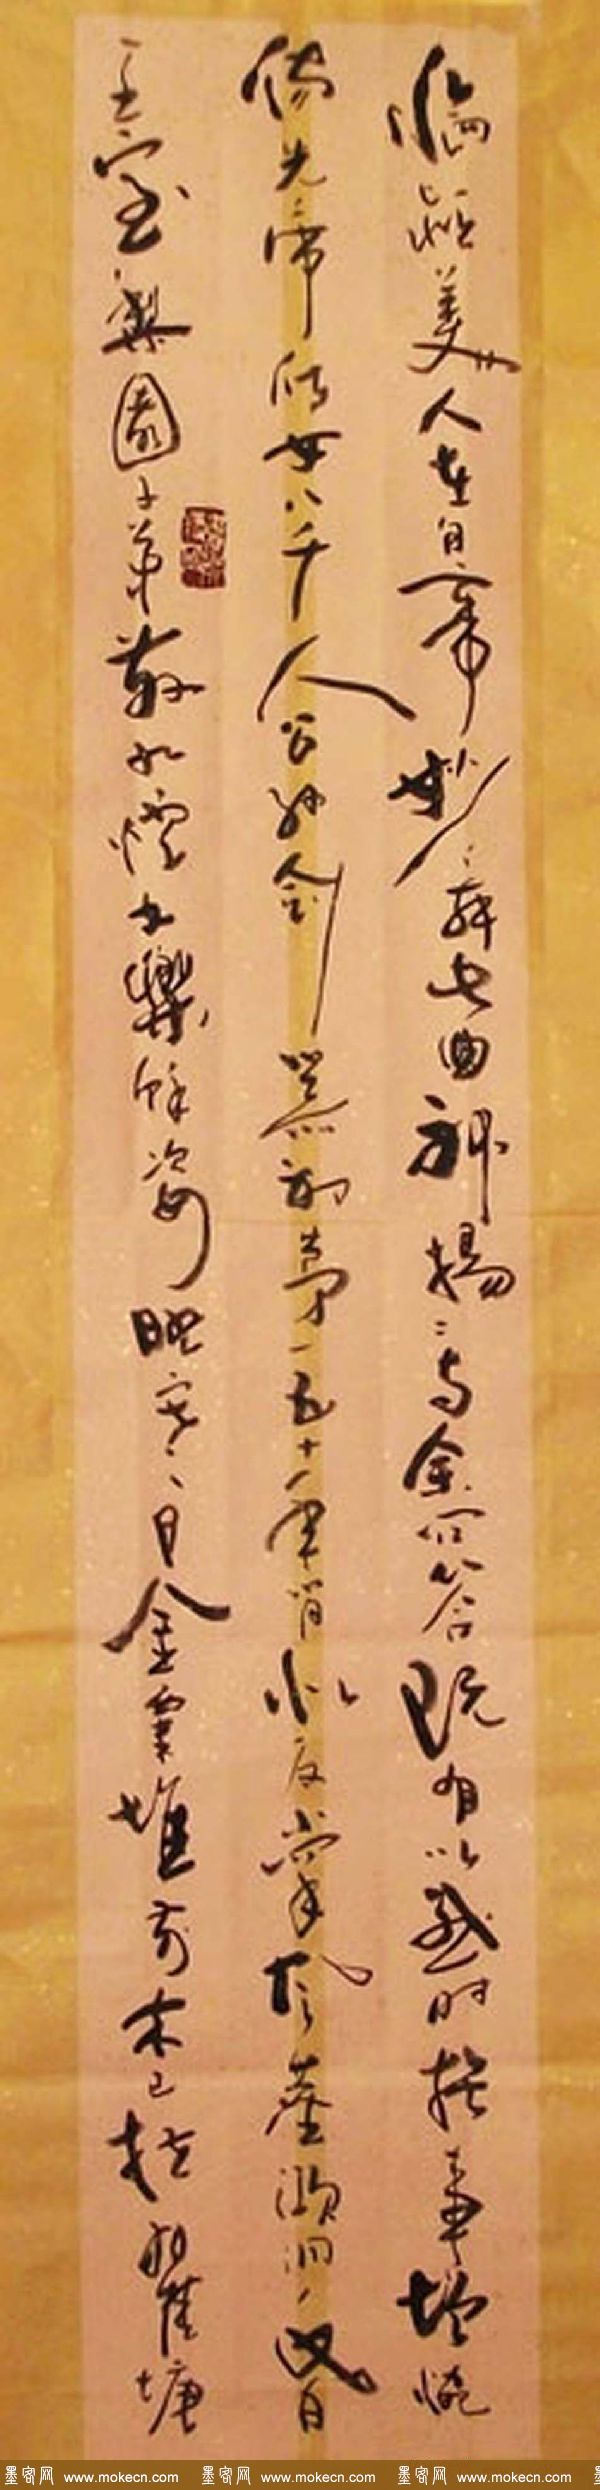 臨颍美人在白帝妙舞此曲神揚〻与余问答既有以感时撫事增惋
傷先帝侍女八千人公孫劍器初第一五十年間似反掌風塵澒洞昏
王室梨園子弟散如煙女樂餘姿映寒日金粟堆前木已拱瞿塘
墨客网 www.mokecn.com 墨客网 www.mokecn.com 墨客网 www.mokecn.com